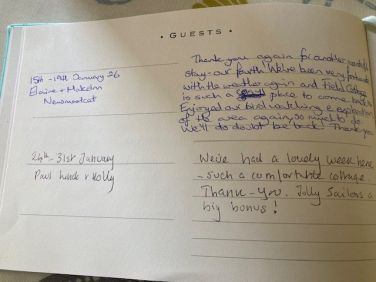 • GUESTS •
15th - 19th January 26
Elaine + Malcolm
Thank you again for another wonderful
stay - our fourth. We've been very fortunate
with the weather again and Field Cottage
is such a place to come back to.
Enjoyed our birdwatching & exploration
of the area again, so much to do.
We'll do doubt be back! Thank you
24th - 31st January
Paul & Holly
We've had a lovely week here
- such a comfortable cottage.
Thank - You. Jolly Sailors a
big bonus!